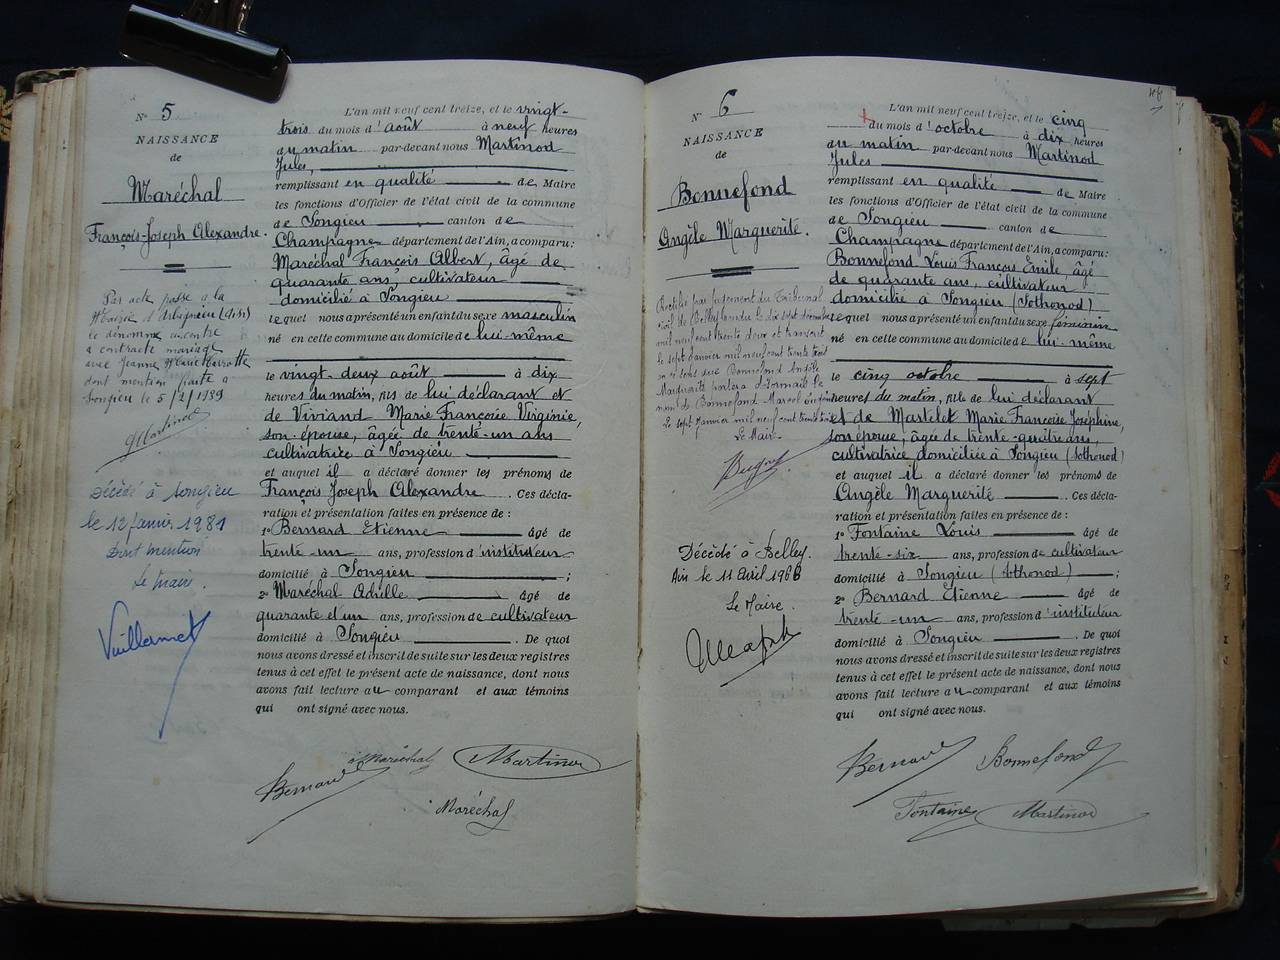 N° 5
NAISSANCE
de
Maréchal
François-Joseph Alexandre.
Par acte passé à la
Mairie d'Arbignieu (Ain)
le dénommé ci-contre
a contracté mariage
avec Jeanne Marie
dont mention faite à
Songieu le 5/2/1939
JMartinod
Décédé à Songieu
le 12 janvier 1981
Dont mention
Le Maire.
Vuillamet
L'an mil neuf cent treize, et le vingt-
trois du mois d'août à neuf heures
du matin par-devant nous Martinod
Jules,
remplissant en qualité de Maire
les fonctions d'Officier de l'état civil de la commune
de Songieu canton de
Champagne département de l'Ain, a comparu:
Maréchal François Albert, âgé de
quarante ans, cultivateur
domicilié à Songieu
lequel nous a présenté un enfant du sexe masculin
né en cette commune au domicile de lui-même
le vingt-deux août à dix
heures du matin, fils de lui déclarant et
de Viviand Marie Françoise Virginie,
son épouse, âgée de trente-un ans
cultivatrice à Songieu
et auquel il a déclaré donner les prénoms de
François Joseph Alexandre. Ces décla-
ration et présentation faites en présence de :
1° Bernard Etienne âgé de
trente-un ans, profession d'instituteur
domicilié à Songieu ;
2° Maréchal Achille âgé de
quarante et un ans, profession de cultivateur
domicilié à Songieu. De quoi
nous avons dressé et inscrit de suite sur les deux registres
tenus à cet effet le présent acte de naissance, dont nous
avons fait lecture au comparant et aux témoins
qui ont signé avec nous.
Maréchal Martinod
Bernard
Maréchal
N° 6
NAISSANCE
de
Bonnefond
Angèle Marguerite.
Rectifié par jugement du Tribunal
civil de Belley rendu le dix sept décembre
mil neuf cent trente deux et transcrit
le sept janvier mil neuf cent trente trois
en ce sens que Bonnefond Angèle
Marguerite portera désormais le
nom de Bonnefond Marcel
Le sept janvier mil neuf cent trente trois
Le Maire.
Décédé à Belley.
Ain le 11 Avril 1966
Le Maire.
L'an mil neuf cent treize, et le cinq
du mois d'octobre à dix heures
du matin par-devant nous Martinod
Jules
remplissant en qualité de Maire
les fonctions d'Officier de l'état civil de la commune
de Songieu canton de
Champagne département de l'Ain, a comparu:
Bonnefond Louis François Emile, âgé
de quarante ans, cultivateur
domicilié à Songieu (Sothonod)
lequel nous a présenté un enfant du sexe féminin
né en cette commune au domicile de lui-même
le cinq octobre à sept
heures du matin, fils de lui déclarant
et de Martelet Marie Françoise Joséphine,
son épouse, âgée de trente-quatre ans,
cultivatrice domiciliée à Songieu (Sothonod)
et auquel il a déclaré donner les prénoms de
Angèle Marguerite Ces décla-
ration et présentation faites en présence de :
1° Fontaine Louis âgé de
trente-six ans, profession de cultivateur
domicilié à Songieu (Sothonod) ;
2° Bernard Etienne âgé de
trente-un ans, profession d'instituteur
domicilié à Songieu. De quoi
nous avons dressé et inscrit de suite sur les deux registres
tenus à cet effet le présent acte de naissance, dont nous
avons fait lecture au comparant et aux témoins
qui ont signé avec nous.
Bernard Bonnefond
Fontaine Martinod